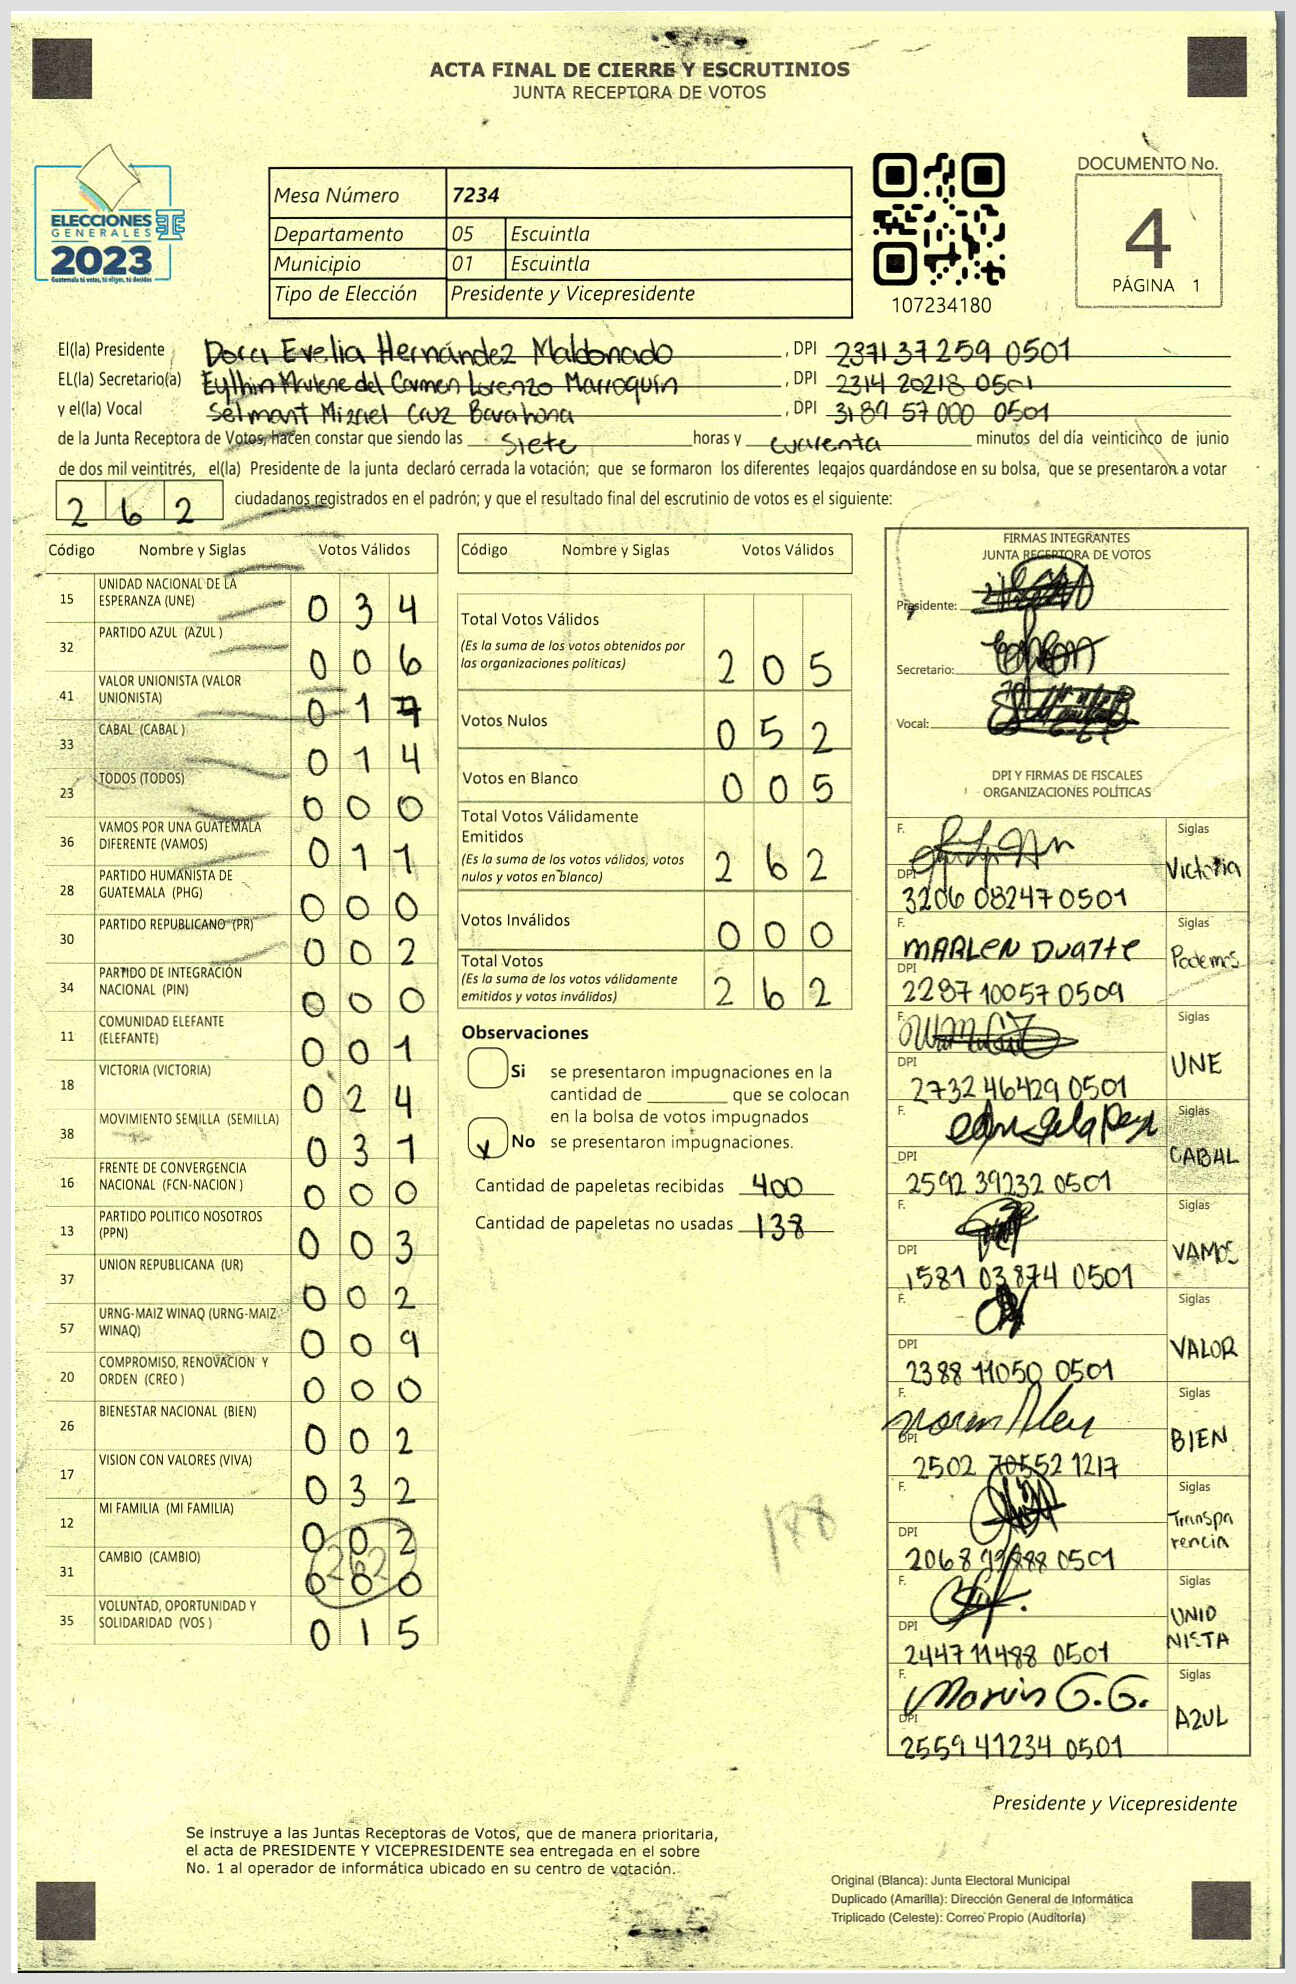 ACTA FINAL DE CIERRE Y ESCRUTINIOS
JUNTA RECEPTORA DE VOTOS
ELECCIONES
GENERALES
2023
Guatemala tú votas, tú eliges, tú decides
Mesa Número 7234
Departamento 05 Escuintla
Municipio 01 Escuintla
Tipo de Elección Presidente y Vicepresidente
107234180
DOCUMENTO No.
4
PÁGINA 1
El(la) Presidente Dorci Evelia Hernández Maldonado, DPI 2371 37259 0501
EL(la) Secretario(a) Eylhin Marlene del Carmen Lorenzo Marroquín, DPI 2314 20218 0501
y el(la) Vocal Selmant Mizriel Cruz Barahona, DPI 3189 57000 0501
de la Junta Receptora de Votos, hacen constar que siendo las siete horas y cuarenta minutos del día veinticinco de junio
de dos mil veintitrés, el(la) Presidente de la junta declaró cerrada la votación; que se formaron los diferentes legajos guardándose en su bolsa, que se presentaron a votar
262 ciudadanos registrados en el padrón; y que el resultado final del escrutinio de votos es el siguiente:
Código Nombre y Siglas Votos Válidos
15 UNIDAD NACIONAL DE LA ESPERANZA (UNE) 034
32 PARTIDO AZUL (AZUL ) 006
41 VALOR UNIONISTA (VALOR UNIONISTA) 017
33 CABAL (CABAL ) 014
23 TODOS (TODOS) 000
36 VAMOS POR UNA GUATEMALA DIFERENTE (VAMOS) 011
28 PARTIDO HUMANISTA DE GUATEMALA (PHG) 000
30 PARTIDO REPUBLICANO (PR) 002
34 PARTIDO DE INTEGRACIÓN NACIONAL (PIN) 000
11 COMUNIDAD ELEFANTE (ELEFANTE) 001
18 VICTORIA (VICTORIA) 024
38 MOVIMIENTO SEMILLA (SEMILLA) 031
16 FRENTE DE CONVERGENCIA NACIONAL (FCN-NACION ) 000
13 PARTIDO POLITICO NOSOTROS (PPN) 003
37 UNION REPUBLICANA (UR) 002
57 URNG-MAIZ WINAQ (URNG-MAIZ WINAQ) 009
20 COMPROMISO, RENOVACION Y ORDEN (CREO ) 000
26 BIENESTAR NACIONAL (BIEN) 002
17 VISION CON VALORES (VIVA) 032
12 MI FAMILIA (MI FAMILIA) 002
31 CAMBIO (CAMBIO) 000
262
35 VOLUNTAD, OPORTUNIDAD Y SOLIDARIDAD (VOS ) 015
Código Nombre y Siglas Votos Válidos
Total Votos Válidos
(Es la suma de los votos obtenidos por
las organizaciones políticas) 205
Votos Nulos 052
Votos en Blanco 005
Total Votos Válidamente
Emitidos
(Es la suma de los votos válidos, votos
nulos y votos en blanco) 262
Votos Inválidos 000
Total Votos
(Es la suma de los votos válidamente
emitidos y votos inválidos) 262
Observaciones
Si se presentaron impugnaciones en la
cantidad de ________ que se colocan
en la bolsa de votos impugnados
X No se presentaron impugnaciones.
Cantidad de papeletas recibidas 400
Cantidad de papeletas no usadas 138
FIRMAS INTEGRANTES
JUNTA RECEPTORA DE VOTOS
Presidente:
Secretario:
Vocal:
DPI Y FIRMAS DE FISCALES
ORGANIZACIONES POLÍTICAS
F. Siglas
Victoria
DPI
3206 08247 0501
F. MARLEN DuaTTe Siglas
Podemos
DPI
2287 10057 0509
F. Siglas
UNE
DPI
2732 46429 0501
F. Siglas
CABAL
DPI
2592 39232 0501
F. Siglas
VAMOS
DPI
1581 03874 0501
F. Siglas
VALOR
DPI
2388 11050 0501
F. Siglas
BIEN
DPI
2502 70552 1217
F. Siglas
Transpa
rencia
DPI
2068 0501
F. Siglas
UNIO
NISTA
DPI
2447 11488 0501
F. Marvin G.G. Siglas
AZUL
DPI
2559 41234 0501
Presidente y Vicepresidente
Se instruye a las Juntas Receptoras de Votos, que de manera prioritaria,
el acta de PRESIDENTE Y VICEPRESIDENTE sea entregada en el sobre
No. 1 al operador de informática ubicado en su centro de votación.
Original (Blanca): Junta Electoral Municipal
Duplicado (Amarilla): Dirección General de Informática
Triplicado (Celeste): Correo Propio (Auditoría)